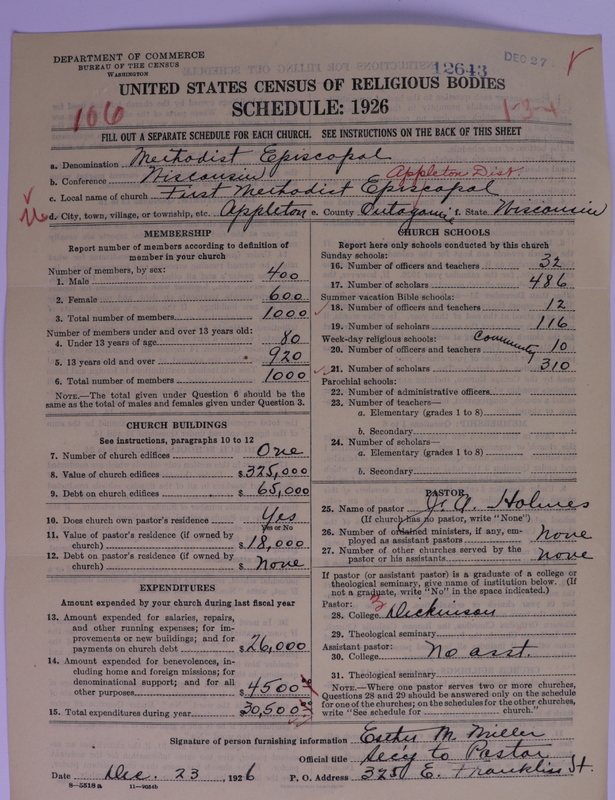 DEPARTMENT OF COMMERCE
BUREAU OF THE CENSUS
WASHINGTON
12643
DEC 27
UNITED STATES CENSUS OF RELIGIOUS BODIES
SCHEDULE: 1926
106
1-3-4
FILL OUT A SEPARATE SCHEDULE FOR EACH CHURCH. SEE INSTRUCTIONS ON THE BACK OF THIS SHEET
a. Denomination Methodist Episcopal
b. Conference Wisconsin Appleton Dist.
c. Local name of church First Methodist Episcopal
d. City, town, village, or township, etc. Appleton e. County Outagamie f. State Wisconsin
MEMBERSHIP
Report number of members according to definition of
member in your church
Number of members, by sex:
1. Male 400
2. Female 600
3. Total number of members 1000
Number of members under and over 13 years old:
4. Under 13 years of age 80
5. 13 years old and over 920
6. Total number of members 1000
NOTE.—The total given under Question 6 should be the
same as the total of males and females given under Question 3.
CHURCH BUILDINGS
See instructions, paragraphs 10 to 12
7. Number of church edifices One
8. Value of church edifices $325,000
9. Debt on church edifices $65,000
10. Does church own pastor's residence Yes
Yes or No
11. Value of pastor's residence (if owned by
church) $18,000
12. Debt on pastor's residence (if owned by
church) $ None
EXPENDITURES
Amount expended by your church during last fiscal year
13. Amount expended for salaries, repairs,
and other running expenses; for im-
provements or new buildings; and for
payments on church debt $26,000
14. Amount expended for benevolences, in-
cluding home and foreign missions; for
denominational support; and for all
other purposes $4500
15. Total expenditures during year $30,500
CHURCH SCHOOLS
Report here only schools conducted by this church
Sunday schools:
16. Number of officers and teachers 32
17. Number of scholars 486
Summer vacation Bible schools:
18. Number of officers and teachers 12
19. Number of scholars 116
Week-day religious schools: Community
20. Number of officers and teachers 10
21. Number of scholars 310
Parochial schools:
22. Number of administrative officers
23. Number of teachers—
a. Elementary (grades 1 to 8)
b. Secondary
24. Number of scholars—
a. Elementary (grades 1 to 8)
b. Secondary
PASTOR
25. Name of pastor J. A. Holmes
(If church has no pastor, write "None")
26. Number of ordained ministers, if any, em-
ployed as assistant pastors None
27. Number of other churches served by the
pastor or his assistants None
If pastor (or assistant pastor) is a graduate of a college or
theological seminary, give name of institution below. (If
not a graduate, write "No" in the space indicated.)
Pastor:
28. College Dickinson
29. Theological seminary
Assistant pastor:
30. College No asst.
31. Theological seminary
NOTE.—Where one pastor serves two or more churches,
Questions 28 and 29 should be answered only on the schedule
for one of the churches; on the schedules for the other churches,
write "See schedule for church."
Signature of person furnishing information Esther M. Miller
Official title Sec'y to Pastor
Date Dec. 23, 1926 P. O. Address 325 E. Franklin St.
8—5518a 11—9034b